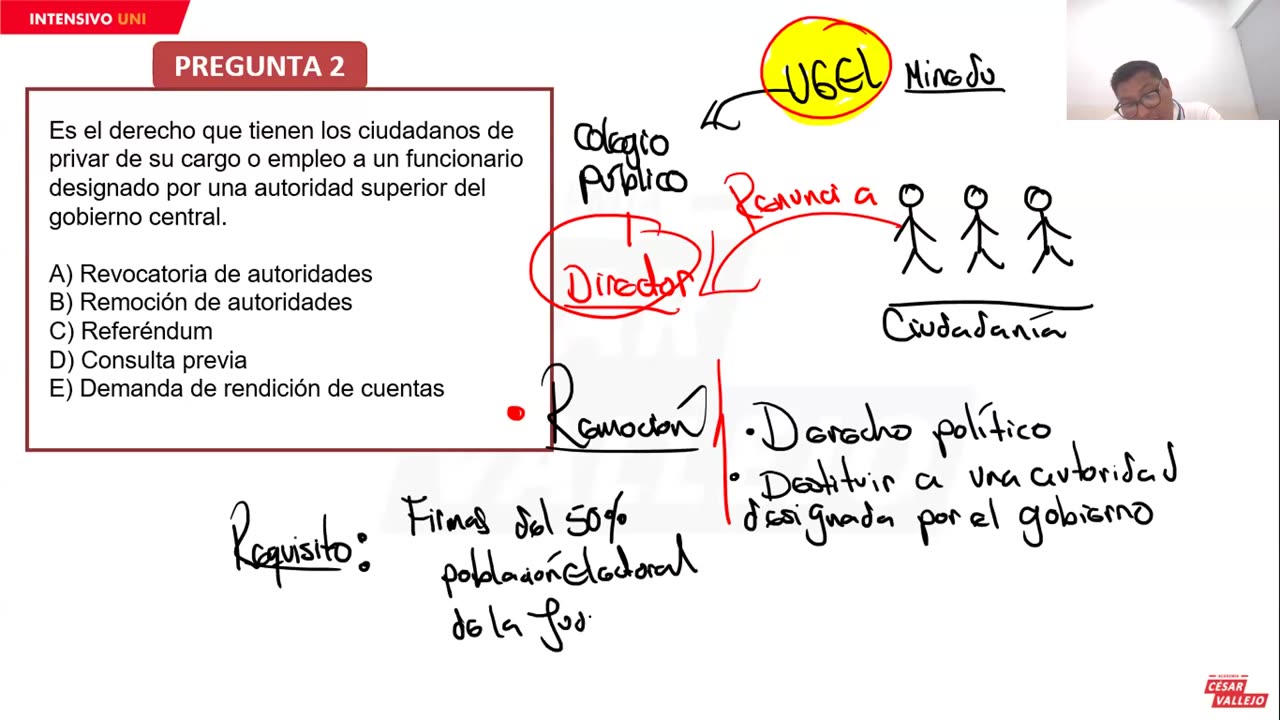 INTENSIVO UNI
PREGUNTA 2
Es el derecho que tienen los ciudadanos de
privar de su cargo o empleo a un funcionario
designado por una autoridad superior del
gobierno central.
A) Revocatoria de autoridades
B) Remoción de autoridades
C) Referéndum
D) Consulta previa
E) Demanda de rendición de cuentas
UGEL Minedu
Colegio
público
Director
Renuncia
Ciudadanía
Remoción
• Derecho político
• Destituir a una autoridad
designada por el gobierno
Requisito:
Firmas del 50%
población electoral
de la Jud
ACADEMIA
CÉSAR
VALLEJO